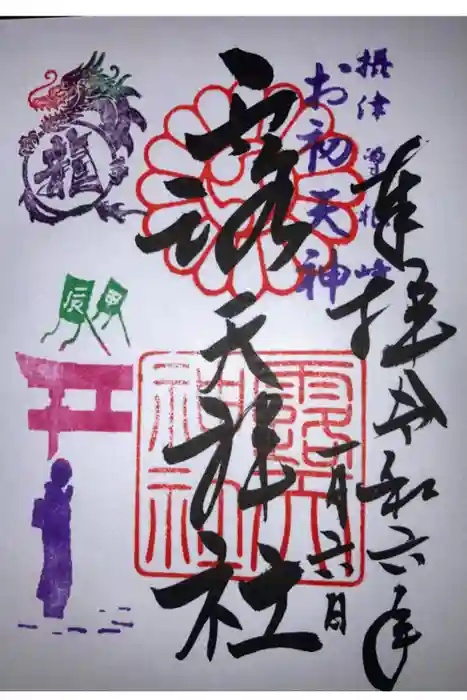 奉拝 令和六年
一月六日
摂津 曽根崎
お初天神
露天神社
露天
神社
龍
甲
辰